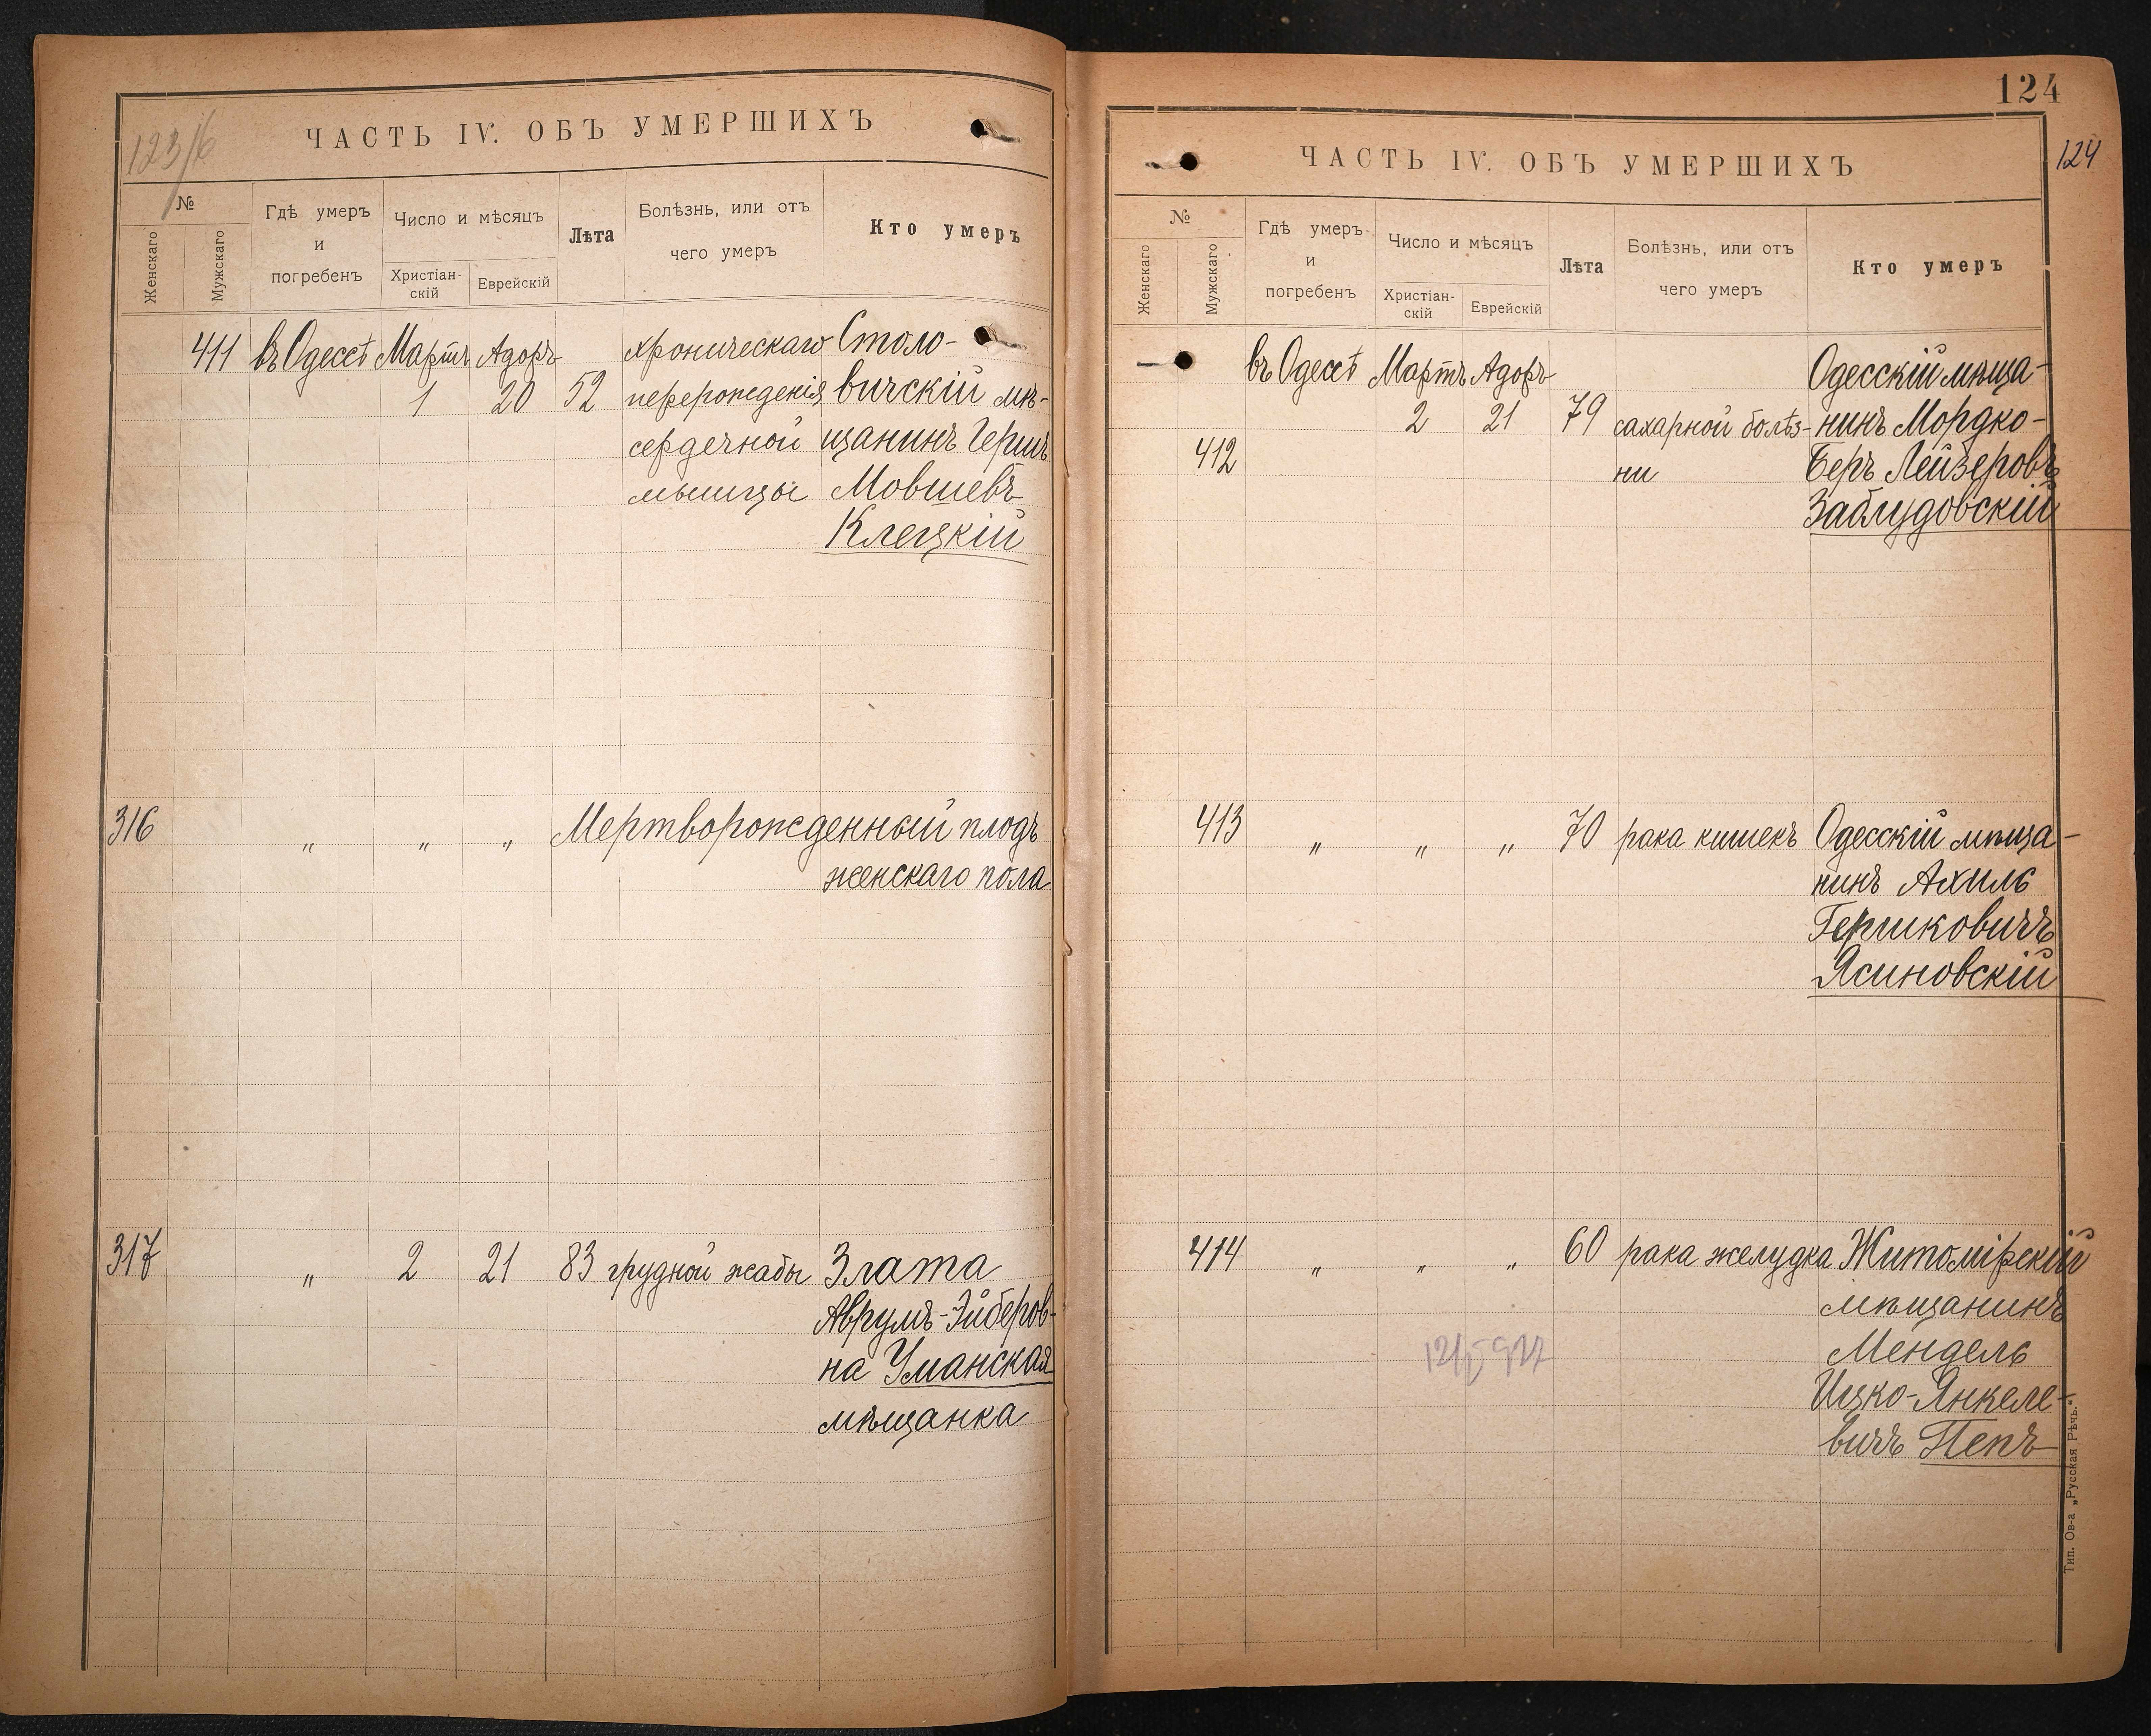 123/б
ЧАСТЬ IV. ОБЪ УМЕРШИХЪ
№
Женскаго
Мужскаго
Гдѣ умеръ
и
погребенъ
Число и мѣсяцъ
Христіан-
скій
Еврейскій
Лѣта
Болѣзнь, или отъ
чего умеръ
Кто умеръ
411 въ Одессѣ Мартъ Адоръ хроническаго Столо-
1 20 52 перерожденія вичскій мѣ-
сердечной щанинъ Гершъ
мышцы Мовшевъ
Клецкій
316 " " " Мертворожденный плодъ
женскаго пола
317 " 2 21 83 грудной жабы Злата
Аврумъ-Эйберов-
на Уманская
мѣщанка
124
124
ЧАСТЬ IV. ОБЪ УМЕРШИХЪ
№
Женскаго
Мужскаго
Гдѣ умеръ
и
погребенъ
Число и мѣсяцъ
Христіан-
скій
Еврейскій
Лѣта
Болѣзнь, или отъ
чего умеръ
Кто умеръ
въ Одессѣ Мартъ Адоръ Одесскій мѣща-
2 21 79 сахарной болѣз- нинъ Мордко-
412 ни Беръ Лейзеровъ
Заблудовскій
413 " " " 70 рака кишекъ Одесскій мѣща-
нинъ Ахиль
Гершковичъ
Ясиновскій
414 " " " 60 рака желудка Житомірскій
мѣщанинъ
Мендель
Ицко-Янкеле-
вичъ Пепъ
Тип. Ов-а „Русская Рѣчь."